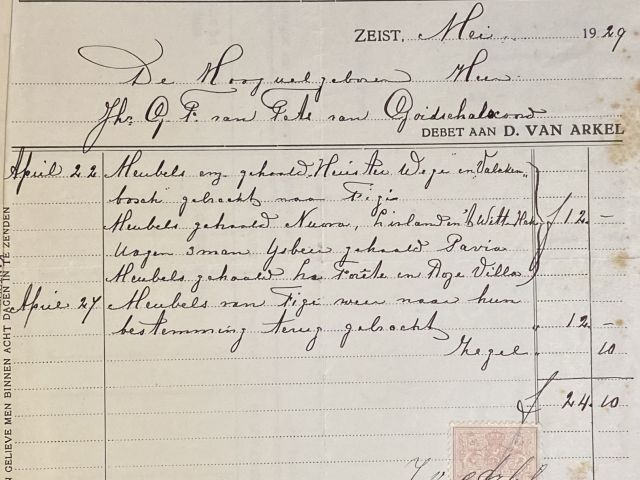 ZEIST, Mei 1929
De Hoog wel geboren Heer
Jhr. G. F. van Tets van Goidschalxoord
DEBET AAN D. VAN ARKEL
April 22 Meubels enz gehaald, Heister Wege en Valcken„
bosch gebracht naar Figi
Meubels gehaald Nuova, Linland en 't Witte Hek ƒ 12. –
Wagen 3 man Ysbeer gehaald Pavia
Meubels gehaald La Forêt en Roze Villa
April 27 Meubels van Figi weer naar hun
bestemming terug gebracht „ 12. –
Zegel „ 10
ƒ 24. 10
GELIEVE MEN BINNEN ACHT DAGEN IN TE ZENDEN